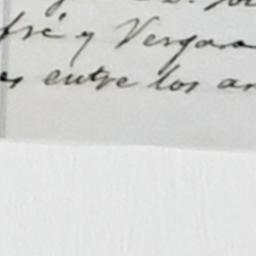 fré y Vergara
es entre los an